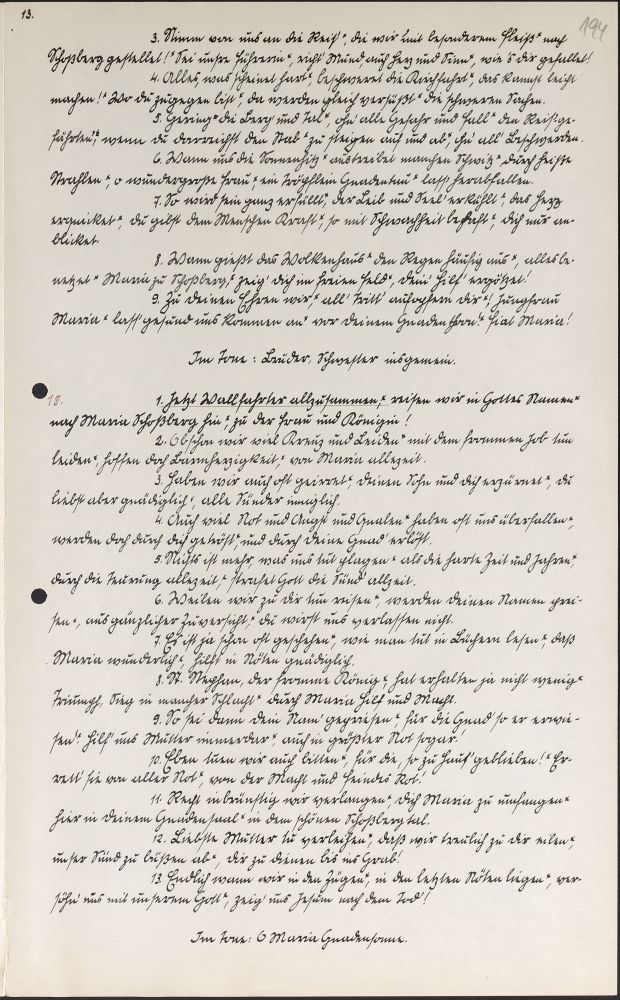 13.
194
3. Nimm von uns an die Reis'*, die wir mit besonderem Fleiß* nach
Schoßberg gestellet!* Sei unsre Führerin*, richt' Mund auch Herz und Sinn*, wie's dir gefället!
4. Alles, was scheinet hart*, beschweret die Kirchfahrt*, das kannst leicht
machen!* Wo du zugegen bist*, da werden gleich versüßt* die schweren Sachen.
5. Gering* die Berg und Tal*, ohn' alle Gefahr und Fall* den Reisge-
fährten,* wenn du darreichst den Stab* zu steigen auf und ab*, ohn' all' Beschwerden.
6. Wann uns die Sonnenhitz* austreibet manchen Schweiß* durch heiße
Strahlen*, o wundergroße Frau*, ein Tröpflein Gnadentau* lass' herabfallen.
7. So wird sein ganz erfüllt*, der Leib und Seel' erkühlt*, das Herz
erquicket*, du gibst dem Menschen Kraft*, so mit Schwachheit behaft'*, dich nur an-
blicket.
8. Wann gießt das Wolkenhaus* den Regen häufig aus*, alles be-
netzet* Maria zu Schoßberg,* zeig' dich im freien Feld*, dein' Hilf' ergötzet!
9. Zu deinen Ehren wir,* all' Tritt' aufopfern dir*! Jungfrau
Maria* lass' gesund uns kommen an* vor deinem Gnadenthron!* Fiat Maria!
Im Tone: Brüder, Schwester insgemein.
18.
1. Jetzt Wallfahrter allzusammen,* reisen wir in Gottes Namen*
nach Maria Schoßberg hin*, zu der Frau und Königin!
2. Obschon wir viel Kreuz und Leiden* mit dem frommen Job tun
leiden*, hoffen doch Barmherzigkeit,* von Maria allezeit.
3. Haben wir auch oft geirret*, deinen Sohn und dich erzürnet*, du
liebst aber gnädiglich*, alle Sünder inniglich.
4. Auch viel Not und Angst und Qualen* haben oft uns überfallen*,
werden doch durch dich getröst'*, und durch deine Gnad' erlöst.
5. Nichts ist mehr, was uns tut plagen* als die harte Zeit und Jahren*,
durch die Teuerung allezeit,* strafet Gott die Sünd' allzeit.
6. Weilen wir zu dir tun reisen*, werden deinen Namen prei-
sen*, aus gänzlicher Zuversicht,* du wirst uns verlassen nicht.
7. Es ist ja schon oft geschehen*, wie man tut in Büchern lesen*, daß
Maria wunderlich*, hilft in Nöten gnädiglich.
8. St. Stephan, der fromme König*, hat erhalten ja nicht wenig*
Triumph, Sieg in mancher Schlacht* durch Maria Hilf und Macht.
9. So sei dann dein Nam' gepriesen*, für die Gnad' so er erwie-
sen*! Hilf uns Mutter immerdar*, auch in größter Not sogar!
10. Eben tuen wir auch bitten*, für die, so zu Haus' geblieben!* Er-
rett' sie von aller Not*, von der Macht und Feindes Rot!
11. Recht inbrünstig wir verlangen*, dich Maria zu umfangen*
hier in deinem Gnadensaal* in dem schönen Schoßbergtal.
12. Liebste Mutter tu verleihen*, daß wir treulich zu dir eilen*,
unser Sünd zu büßen ab*, dir zu dienen bis ins Grab!
13. Endlich wann wir in den Zügen*, in den letzten Nöten liegen*, ver-
söhn' uns mit unserem Gott*, zeig' uns Jesum nach dem Tod!
Im Tone: O Maria Gnadensonne.